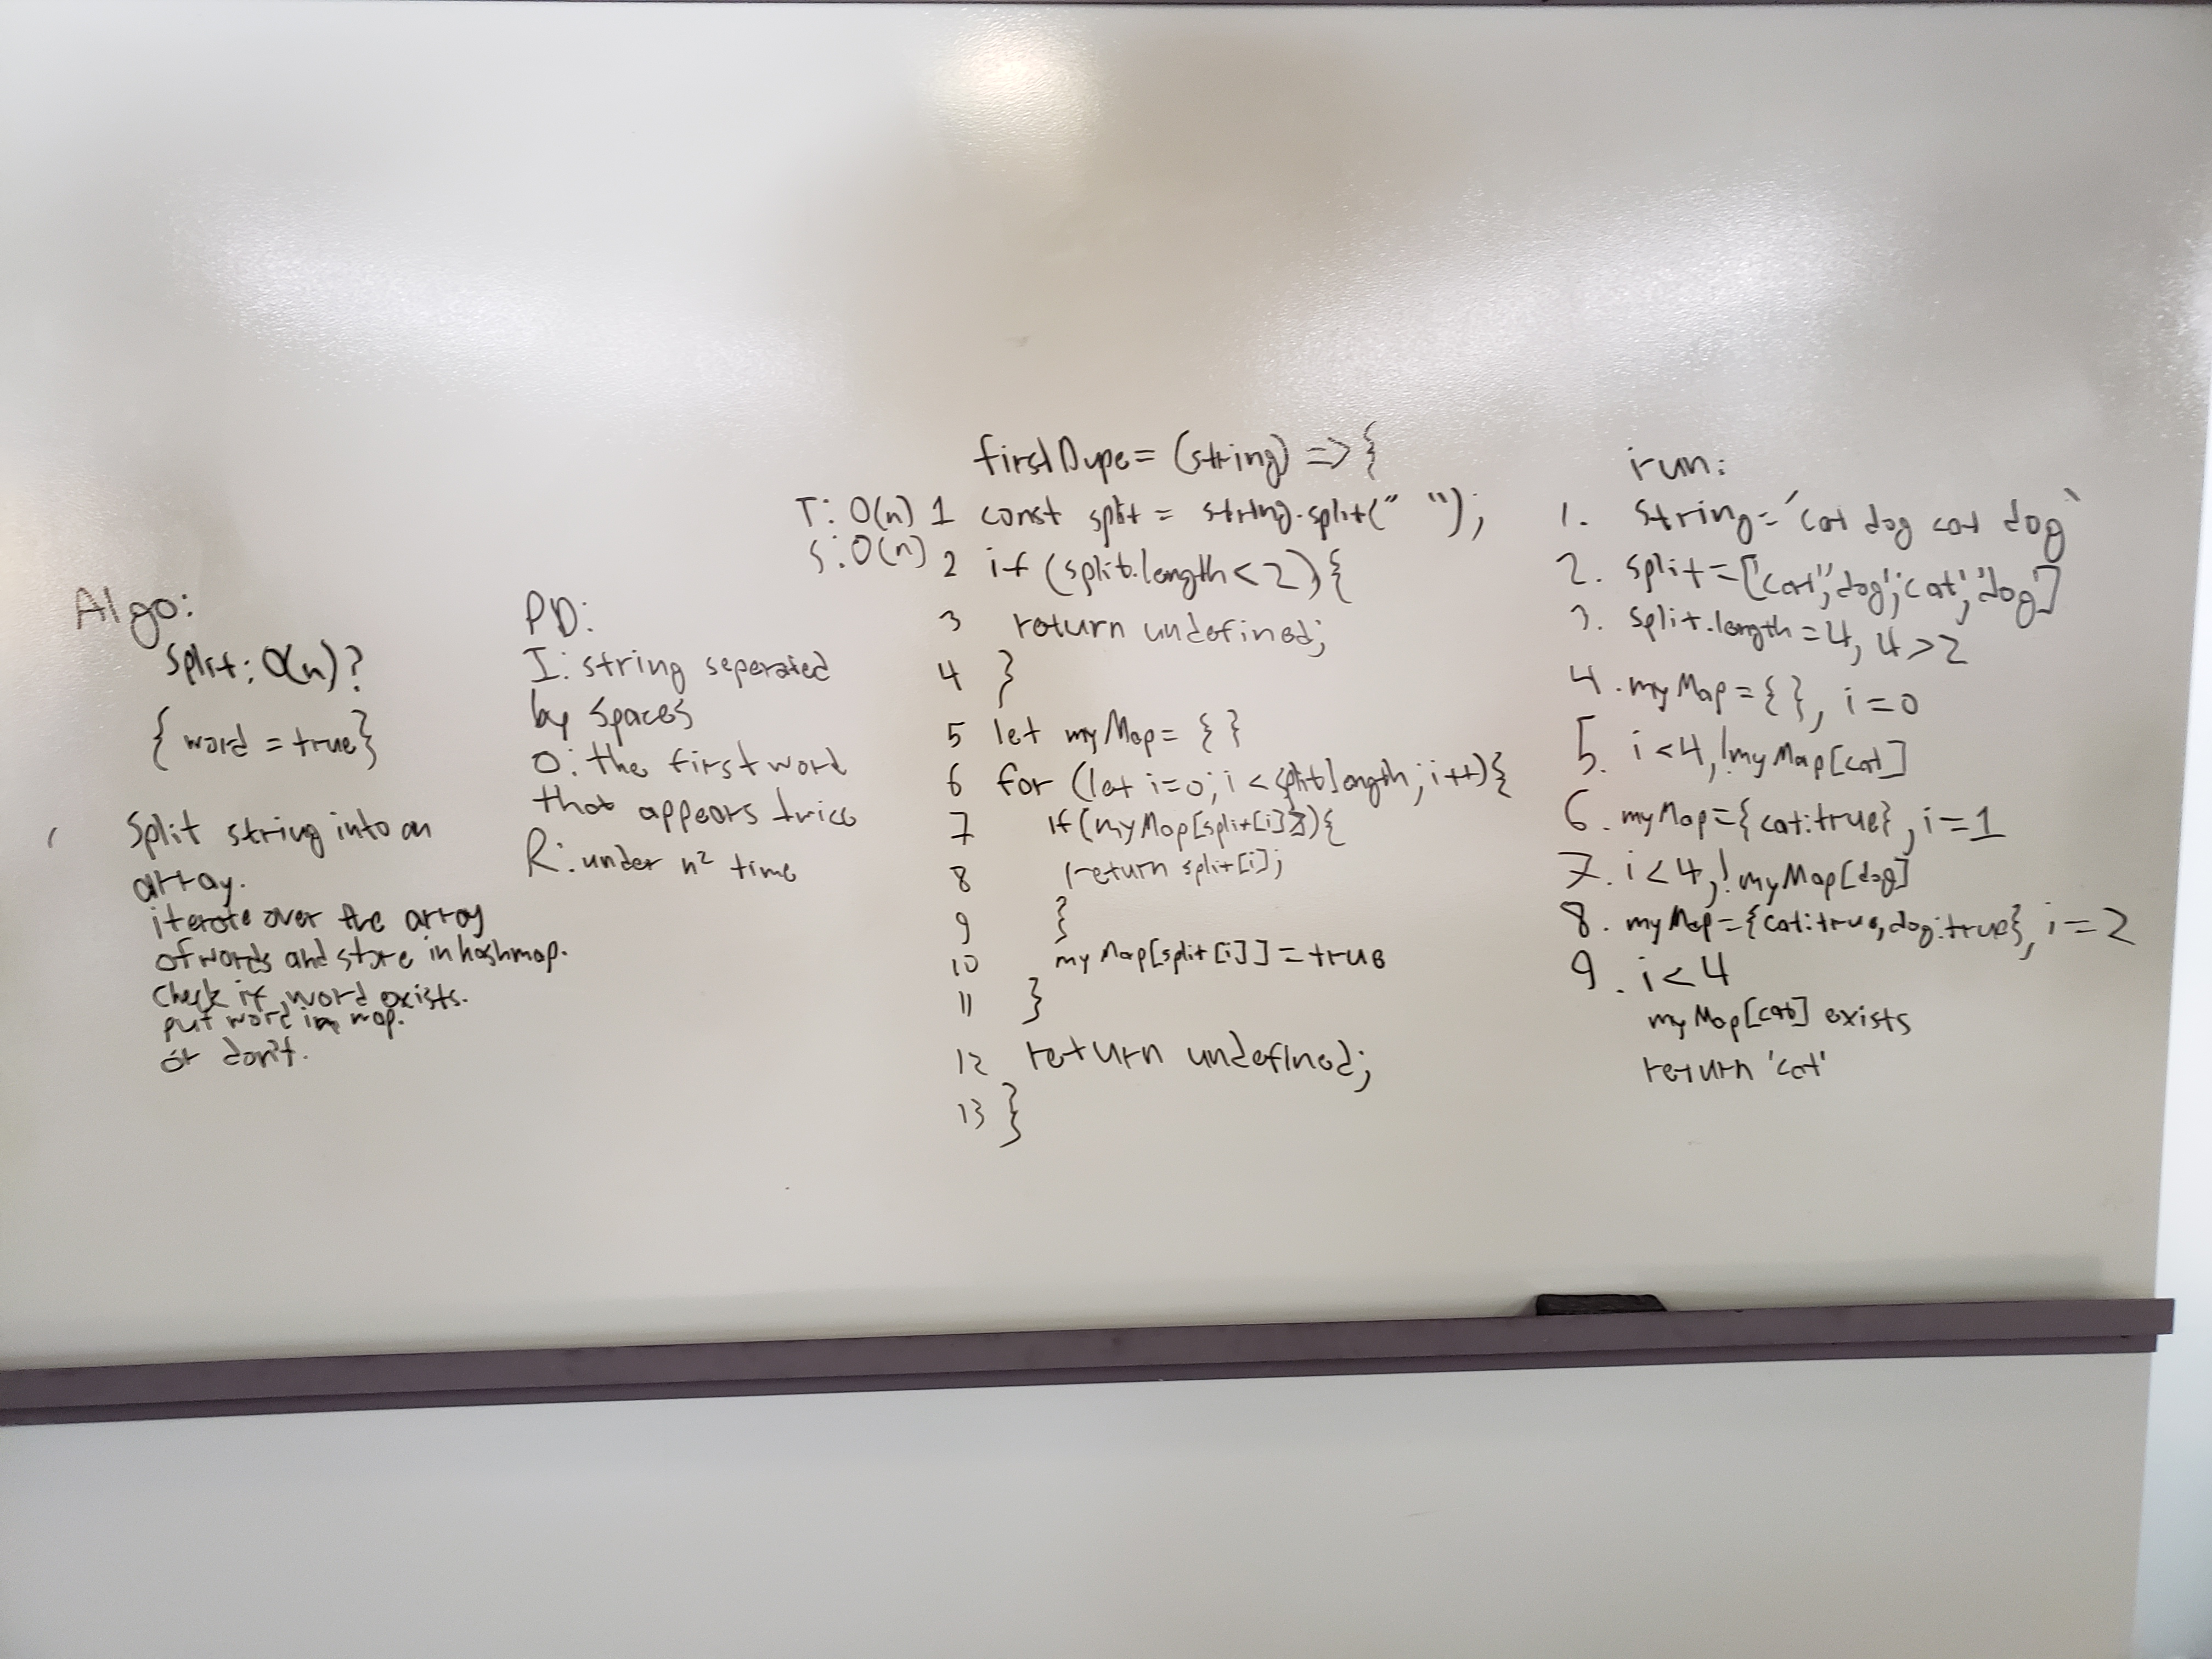 Algo:
Split: O(n)?
{ word = true}
Split string into an
array.
iterate over the array
of words and store in hashmap.
Check if word exists.
put word in map.
or don't.
PD:
I: string seperated
by spaces
O: the first word
that appears twice
R: under n² time
T: O(n)
S: O(n)
firstDupe = (string) => {
1 const split = string.split(" ");
2 if (split.length < 2) {
3 return undefined;
4 }
5 let myMap = { }
6 for (let i=0; i < split.length; i++) {
7 if (myMap[split[i]]) {
8 return split[i];
9 }
10 myMap[split[i]] = true
11 }
12 return undefined;
13 }
run:
1. string = 'cat dog cat dog'
2. split = ['cat', 'dog', 'cat', 'dog']
3. split.length = 4, 4 > 2
4. myMap = { }, i = 0
5. i < 4, !myMap[cat]
6. myMap = {cat:true}, i = 1
7. i < 4, !myMap[dog]
8. myMap = {cat:true, dog:true}, i = 2
9. i < 4
myMap[cat] exists
return 'cat'